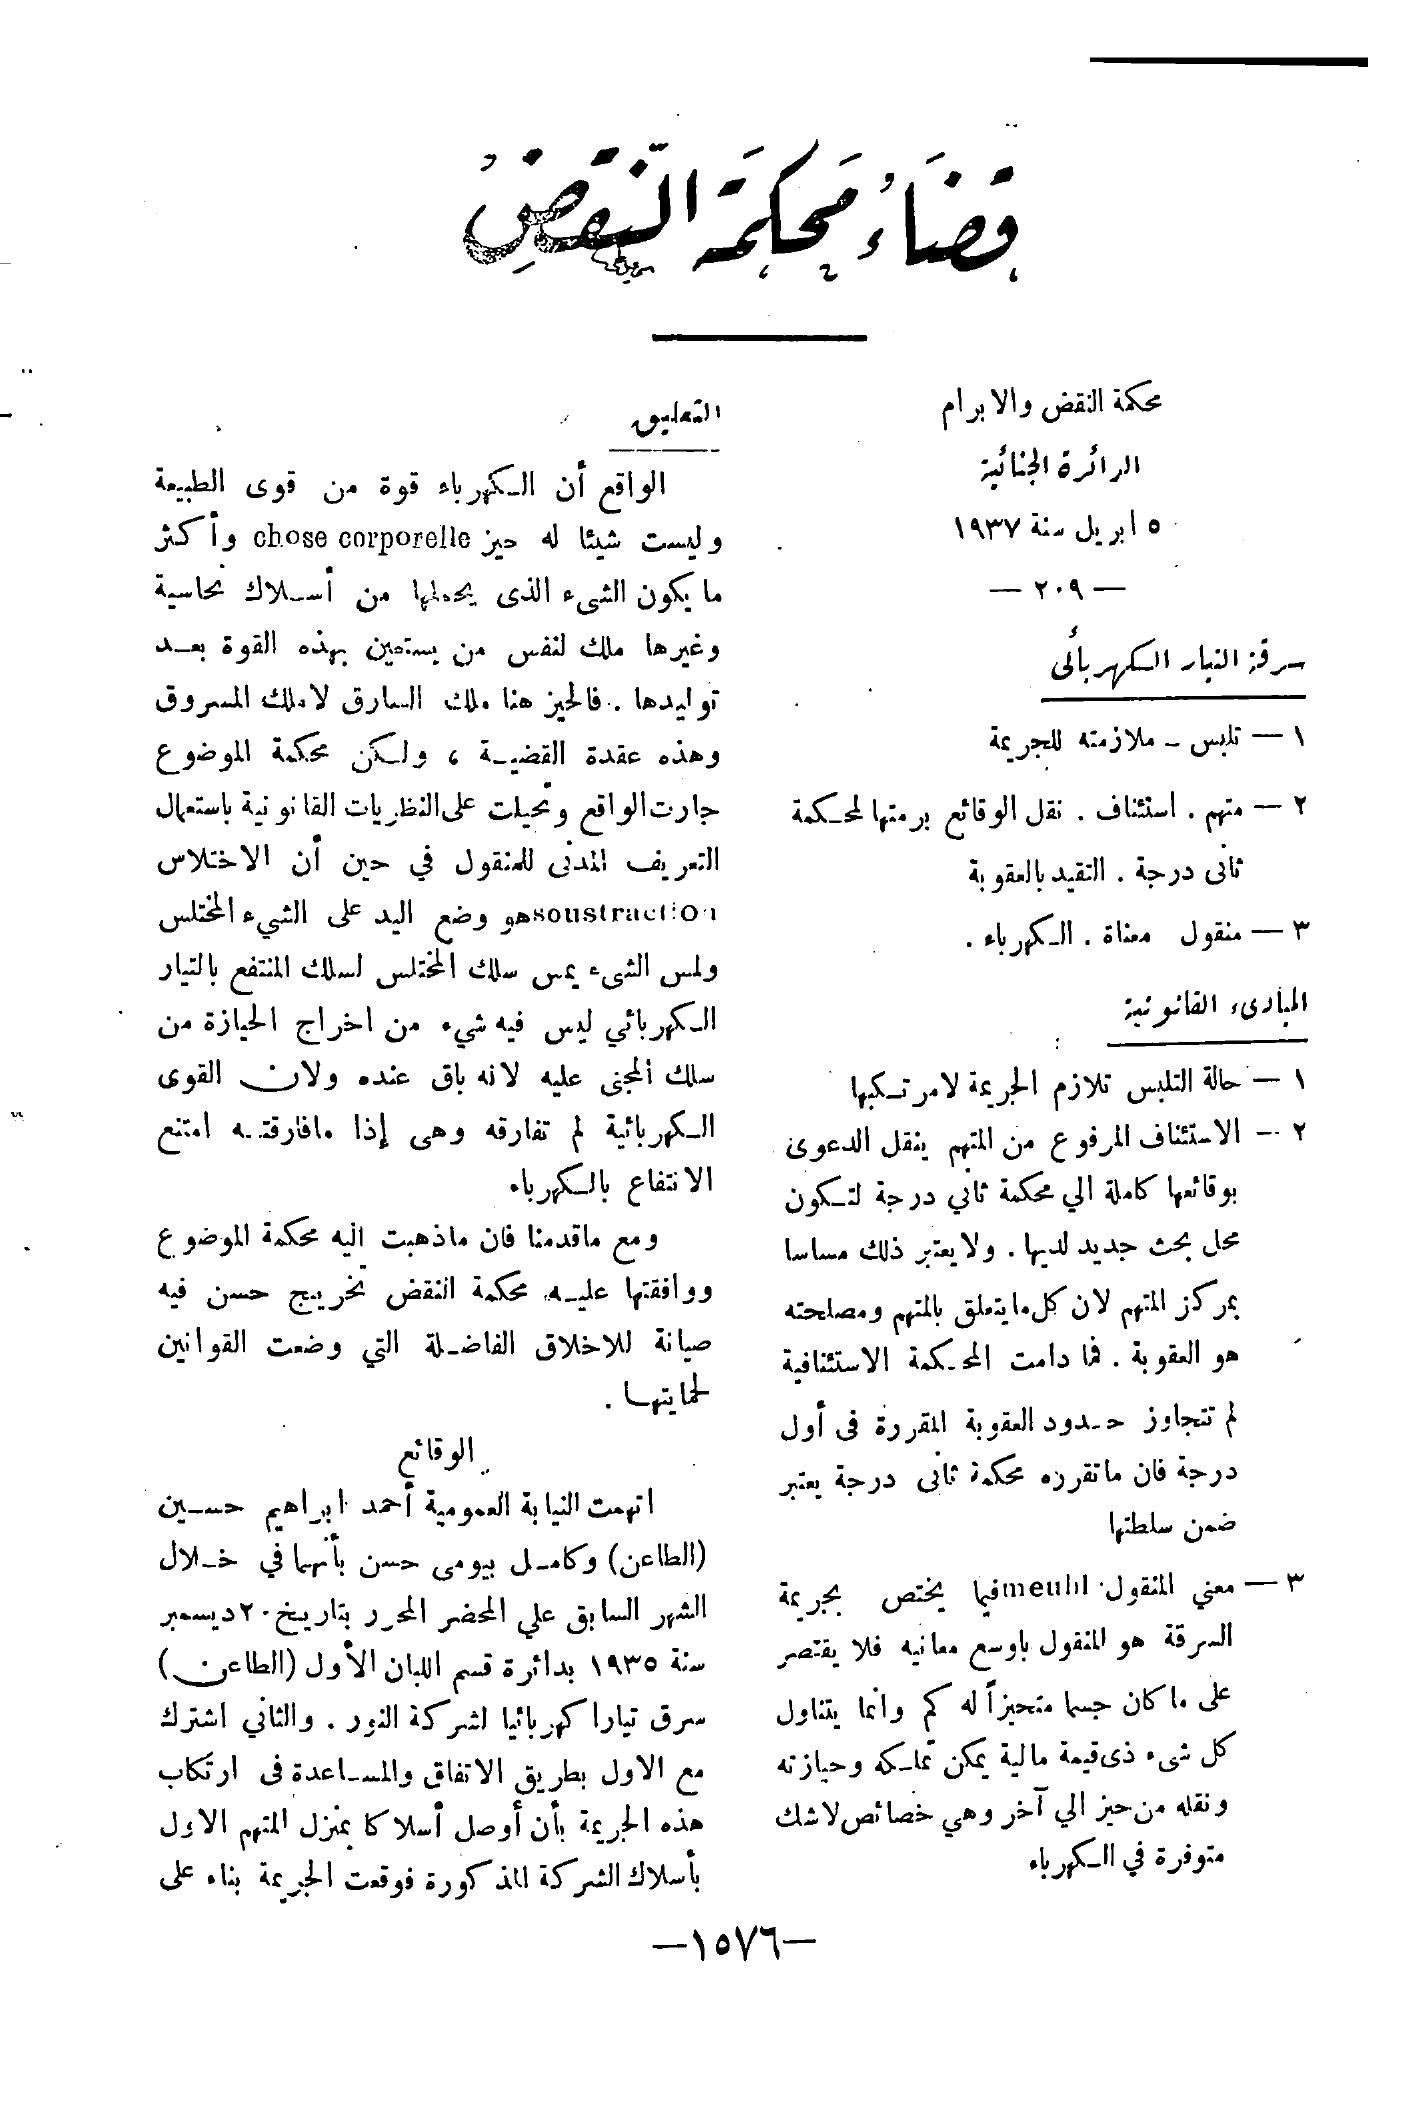 قضاء محكمة النقض
محكمة النقض والابرام
الدائرة الجنائية
٥ ابريل سنة ١٩٣٧
— ٢٠٩ —
سرقة التيار الكهربائى
١ — تلبس - ملازمته للجريمة
٢ — متهم . استئناف . نقل الوقائع برمتها لمحكمة
ثانى درجة . التقيد بالعقوبة
٣ — منقول معناة . الكهرباء .
المبادىء القانونية
١ — حالة التلبس تلازم الجريمة لامرتكبها
٢ — الاستئناف المرفوع من المتهم ينقل الدعوى
بوقائعها كاملة الي محكمة ثاني درجة لتكون
محل بحث جديد لديها . ولا يعتبر ذلك مساسا
بمركز المتهم لان كل مايتعلق بالمتهم ومصلحته
هو العقوبة . فما دامت المحكمة الاستئنافية
لم تتجاوز حدود العقوبة المقررة فى أول
درجة فان ماتقرره محكمة ثانى درجة يعتبر
ضمن سلطتها
٣ — معني المنقول meubl فيما يختص بجريمة
السرقة هو المنقول باوسع معانيه فلا يقتصر
على ما كان جسما متحيزاً له كم وانما يتناول
كل شىء ذى قيمة مالية يمكن تملكه وحيازته
ونقله من حيز الي آخر وهي خصائص لاشك
متوفرة في الكهرباء
التعليق
الواقع أن الكهرباء قوة من قوى الطبيعة
وليست شيئا له حيز chose corporelle وأكثر
ما يكون الشىء الذى يحملها من أسلاك نحاسية
وغيرها ملك لنفس من يستعين بهذه القوة بعد
توليدها . فالحيز هنا ملك السارق لاملك المسروق
وهذه عقدة القضية ، ولكن محكمة الموضوع
جارت الواقع وتحيلت على النظريات القانونية باستعمال
التعريف المدنى للمنقول في حين أن الاختلاس
soustraction هو وضع اليد على الشيء المختلس
ولمس الشىء يمس سلك المختلس لسلك المنتفع بالتيار
الكهربائي ليس فيه شيء من اخراج الحيازة من
سلك المجنى عليه لانه باق عنده ولان القوى
الكهربائية لم تفارقه وهى إذا مافارقته امتنع
الانتفاع بالكهرباء
ومع ماقدمنا فان ماذهبت اليه محكمة الموضوع
ووافقتها عليه محكمة النقض تخريج حسن فيه
صيانة للاخلاق الفاضلة التي وضعت القوانين
لحمايتها .
الوقائع
اتهمت النيابة العمومية أحمد ابراهيم حسين
(الطاعن) وكامل بيومى حسن بأنهما في خلال
الشهر السابق علي المحضر المحرر بتاريخ ٢٠ ديسمبر
سنة ١٩٣٥ بدائرة قسم اللبان الأول (الطاعن)
سرق تيارا كهربائيا لشركة النور . والثاني اشترك
مع الاول بطريق الاتفاق والمساعدة فى ارتكاب
هذه الجريمة بأن أوصل أسلاكا بمنزل المتهم الاول
بأسلاك الشركة المذكورة فوقعت الجريمة بناء على
—١٥٧٦—